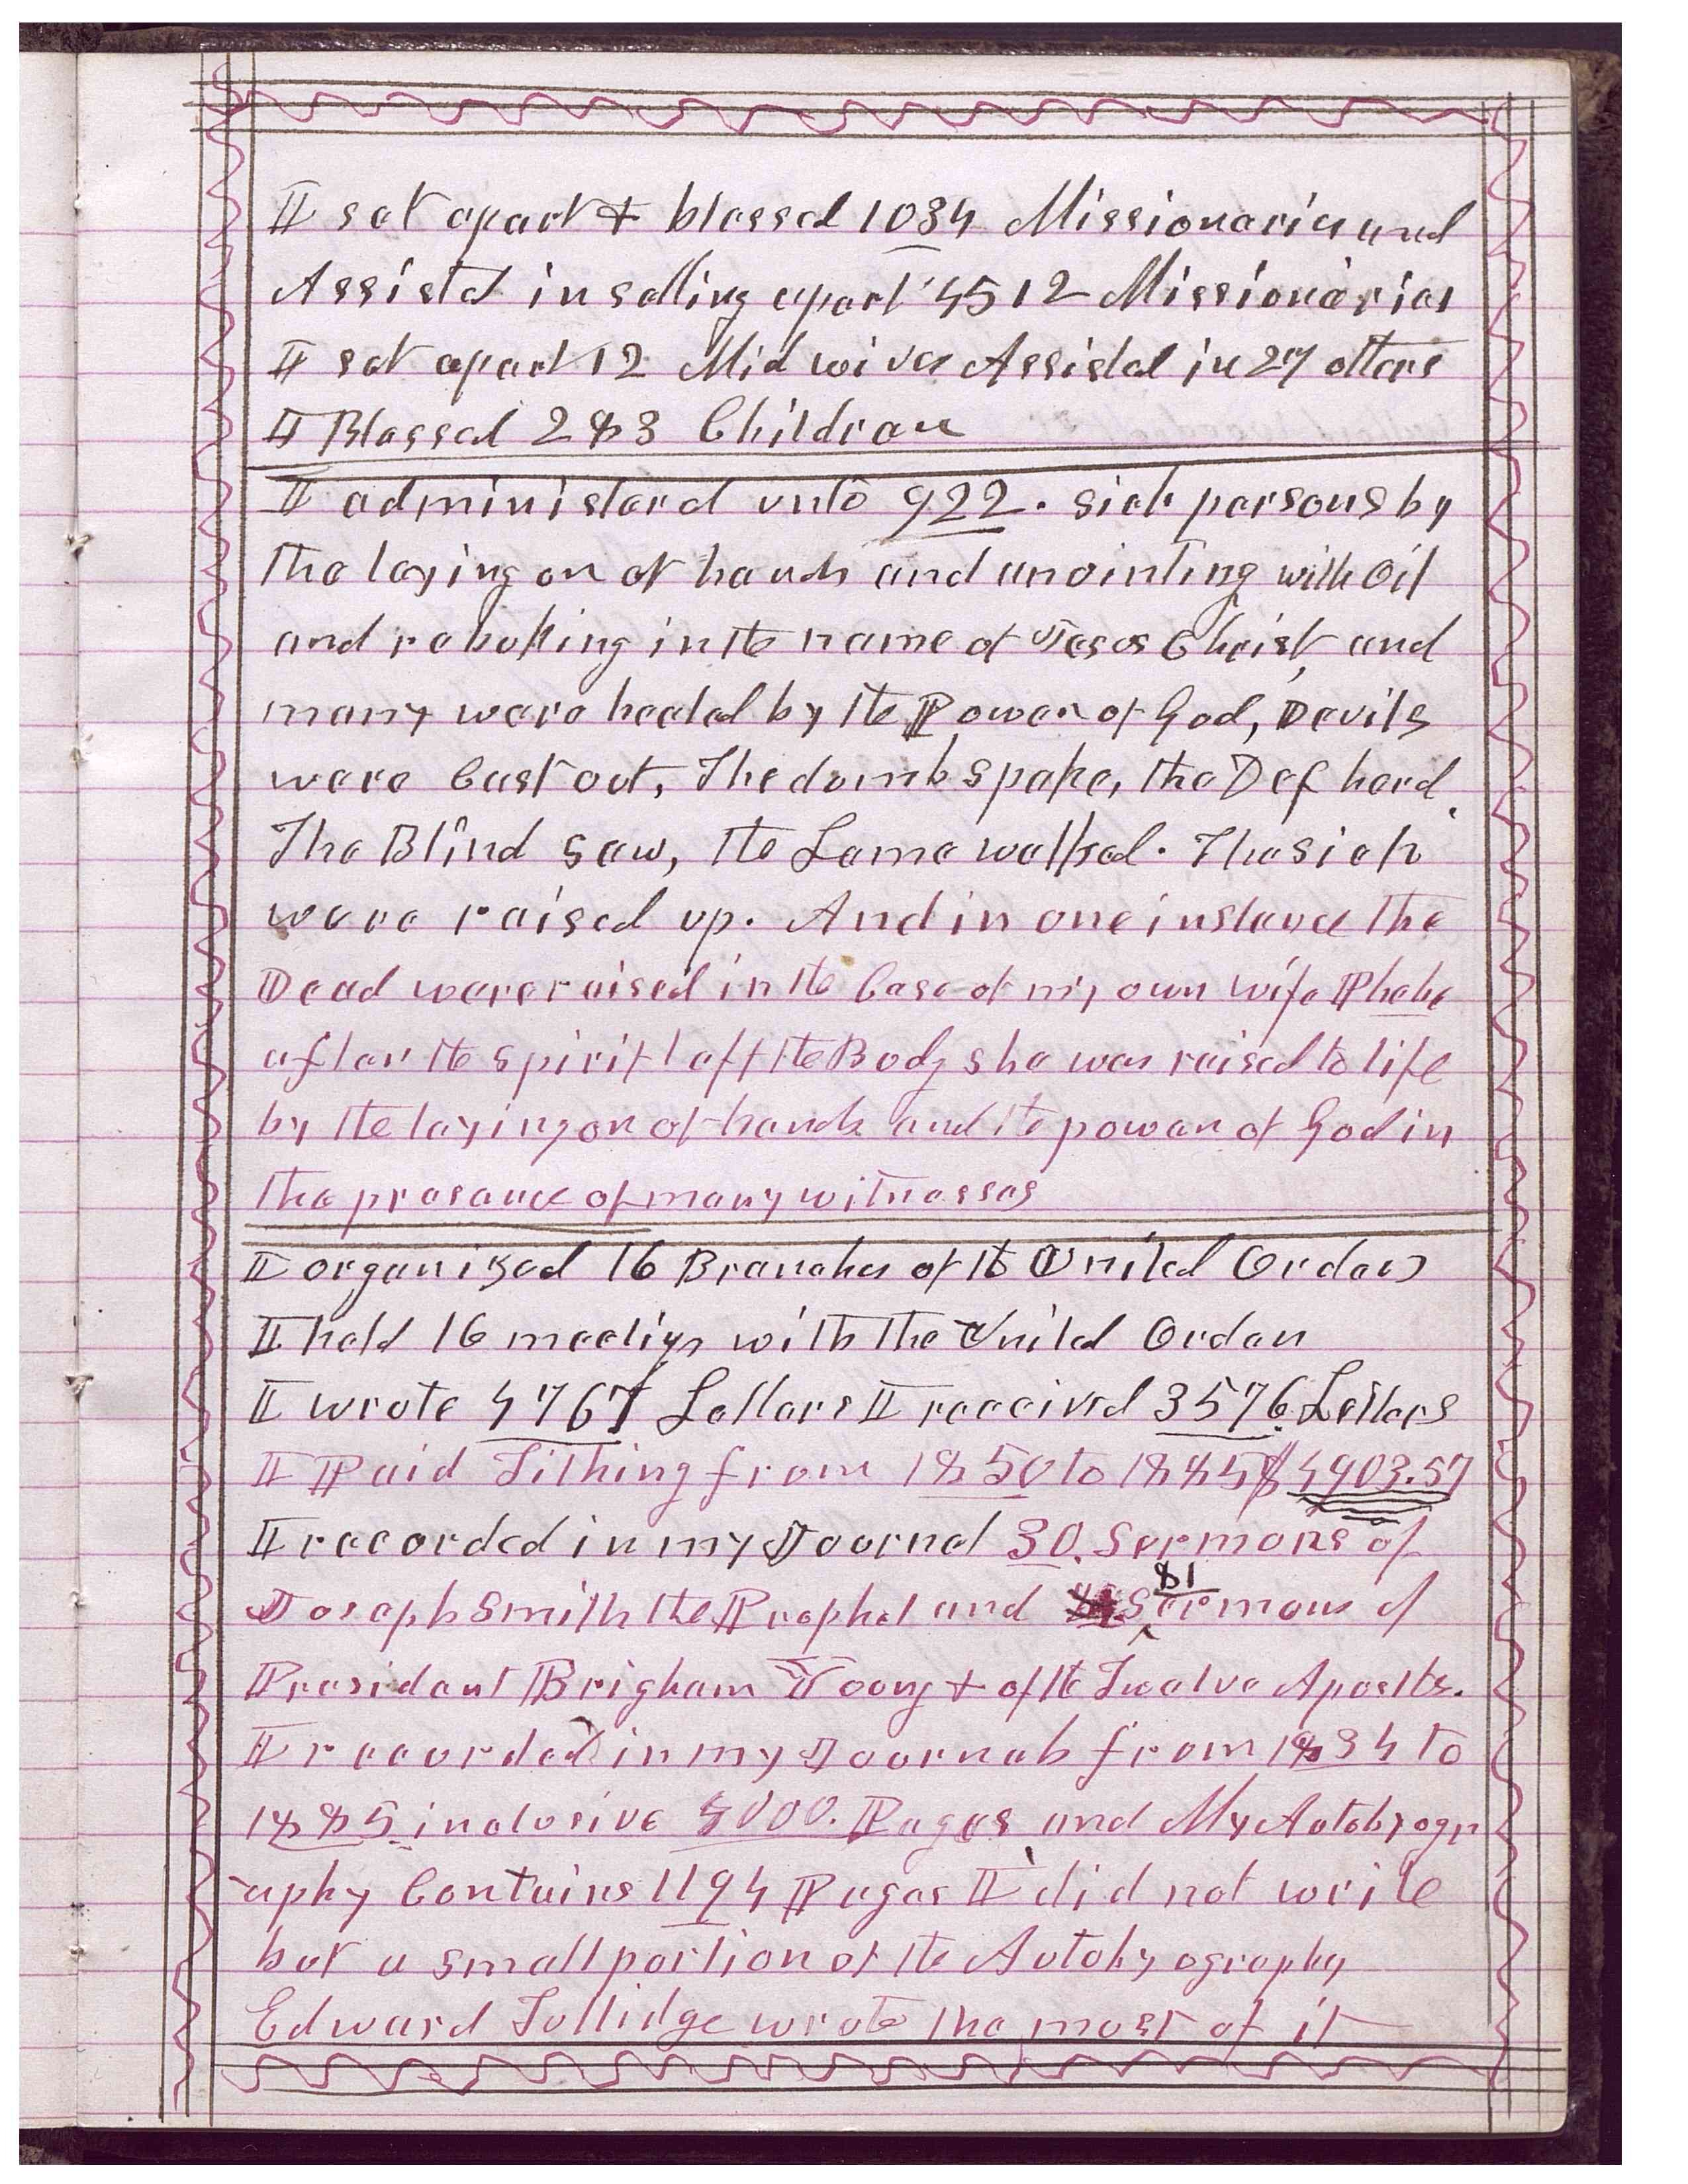 I set apart + blessed 1034 Missionaries and
Assistd in setting apart 4512 Missionaries
I set apart 12 Midwives Assisted in 27 others
I Blessed 283 Children
I administerd unto 922. sick persons by
the laying on of hands and anointing with Oil
and rebuking in the name of Jesus Christ and
many were healed by the Power of God, Devils
were Cast out, The dumb spake, the Def herd.
The Blind saw, the Lame walked. The sick
were raised up. And in one instance the
Dead were raised in the Case of my own wife Phebe
after the spirit left the Body she was raised to life
by the laying on of hands and the power of God in
the presence of many witnesses
I organized 16 Branches of the United Orders
I held 16 meetigs with the United Order
I wrote 4767 Letters I received 3576 Letters
I Paid Tithing from 1850 to 1885 $4903.57
I recorded in my Journal 30. Sermons of
Joseph Smith the Prophet and 81 Sermons of
President Brigham Young + of the Twelve Apostles.
I recorded in my Journals from 1834 to
1885 inclusive 4000. Pages and My Autobyogr
-aphy Contains 1194 Pages I did not write
but a small portion of the Autobyography
Edward Tullidge wrote the most of it